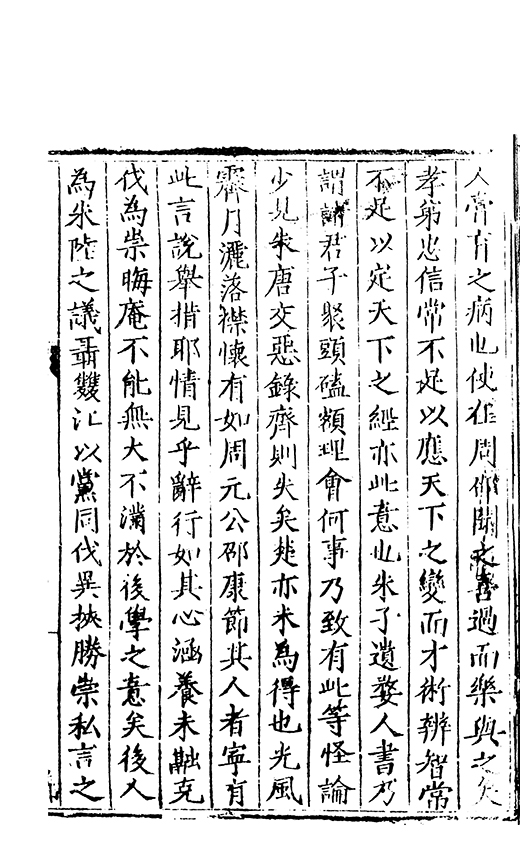 人嘗有之病也使在周仰聞之喜過而樂與之矣
孝弟忠信常不足以應天下之變而才術辨智常
不足以定天下之經亦此意也朱子遺婺人書乃
謂諸君子聚頭磕額理會何事乃致有此等怪論
少見朱唐交惡錄齊則失矣楚亦未為得也光風
霽月灑落襟懷有如周元公邵康節其人者寧有
此言說舉措耶情見乎辭行如其心涵養未融克
伐為祟晦庵不能無大不滿於後學之意矣後人
為朱陸之議聶雙江以黨同伐異挾勝崇私言之